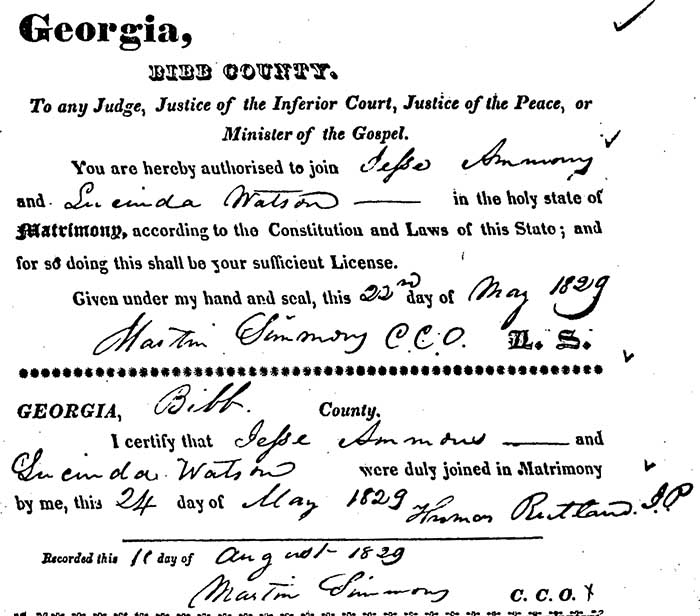 Georgia,
BIBB COUNTY.
To any Judge, Justice of the Inferior Court, Justice of the Peace, or
Minister of the Gospel.
You are hereby authorised to join Jesse Ammons
and Lucinda Watson in the holy state of
Matrimony, according to the Constitution and Laws of this State; and
for so doing this shall be your sufficient License.
Given under my hand and seal, this 22nd day of May 1829
Martin Simmons C.C.O. L. S.
GEORGIA, Bibb County.
I certify that Jesse Ammons and
Lucinda Watson were duly joined in Matrimony
by me, this 24 day of May 1829 Thomas Rutland. J.P
Recorded this 11 day of August 1829
Martin Simmons C. C. O.